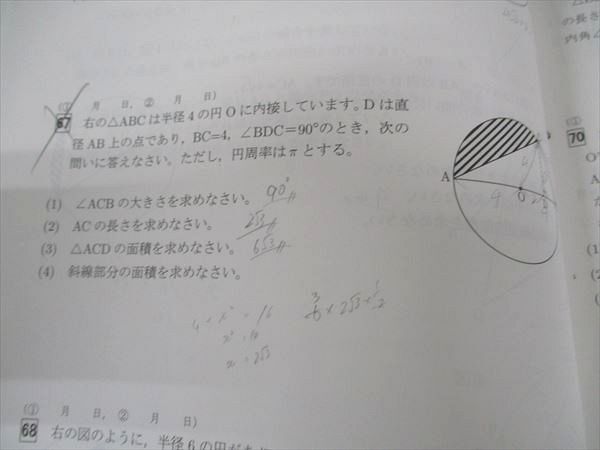 の長さ
内角
(① 月 日, ② 月 日)
67 右の△ABCは半径4の円Oに内接しています。Dは直
径AB上の点であり, BC=4, ∠BDC=90°のとき, 次の
問いに答えなさい。ただし, 円周率はπとする。
(1) ∠ACBの大きさを求めなさい。 90°
(2) ACの長さを求めなさい。 2√3
(3) △ACDの面積を求めなさい。 6√3
(4) 斜線部分の面積を求めなさい。
A
4
O
70
(1)
(2)
= 16
x = 2√3
(① 月 日, ② 月 日)
68 右の図のように, 半径6の円が